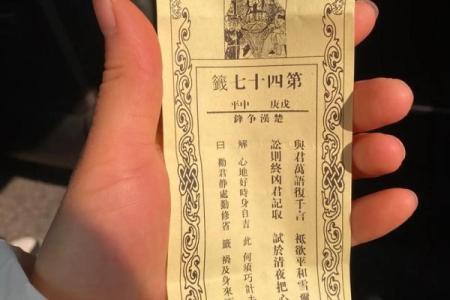 第四十七籤
戊庚 中平
楚漢爭鋒
與君萬語復千言 祗欲平和雪
訟則終凶君記取 試於清夜把
解 心地好時身自吉 此 何須巧計
曰 勸君靜處勤修省 籤 禍及身來